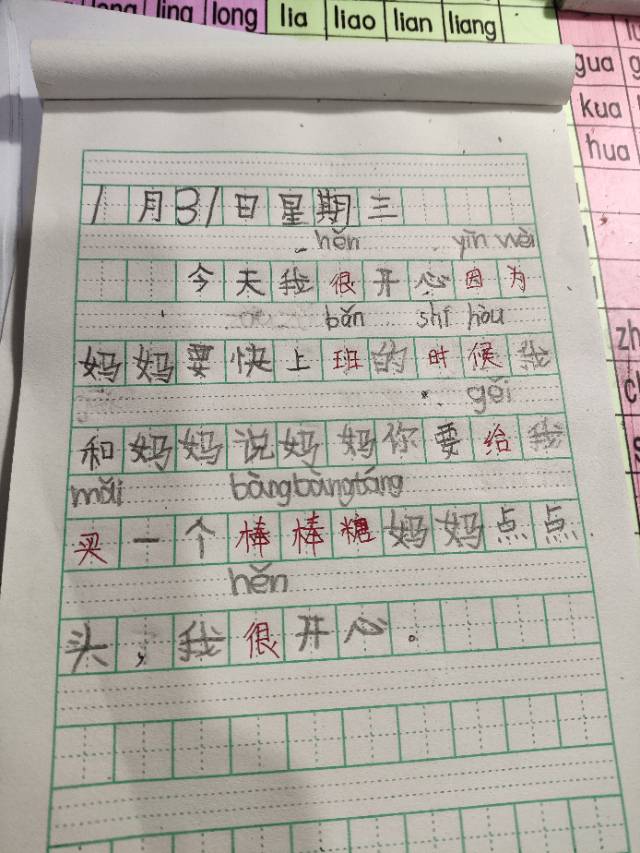 ling long lia liao lian liang
gua
kua
hua
1月31日星期三
hěn yīn wèi
今天我很开心因为
bān shí hòu
妈妈要快上班的时候我
gěi
和妈妈说妈妈你要给我
mǎi bàngbàngtáng
买一个棒棒糖妈妈点点
hěn
头，我很开心。
zh